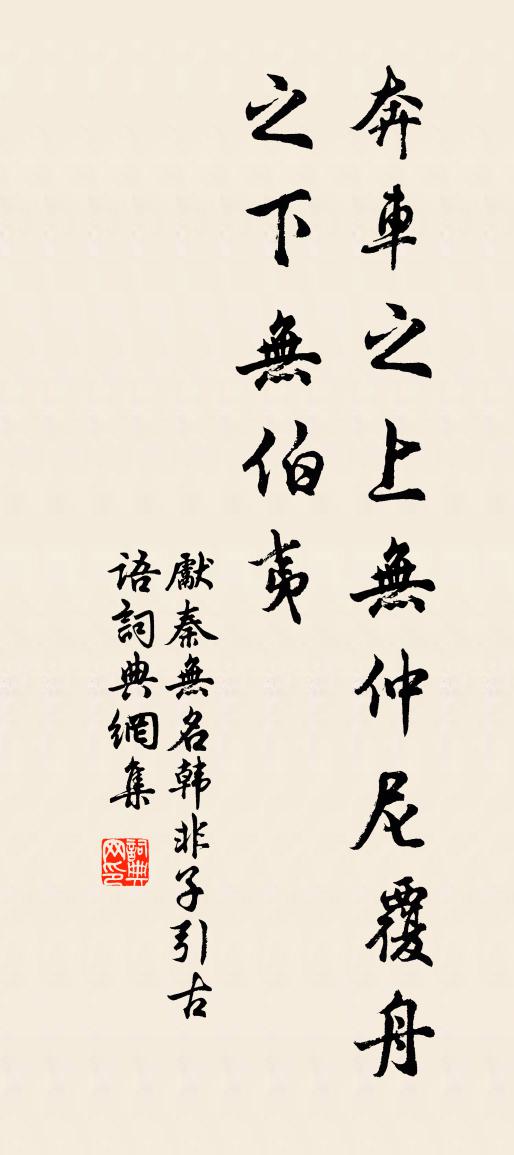 奔車之上無仲尼覆舟
之下無伯夷
獻秦無名韩非子引古
语詞典網集
詞典网印